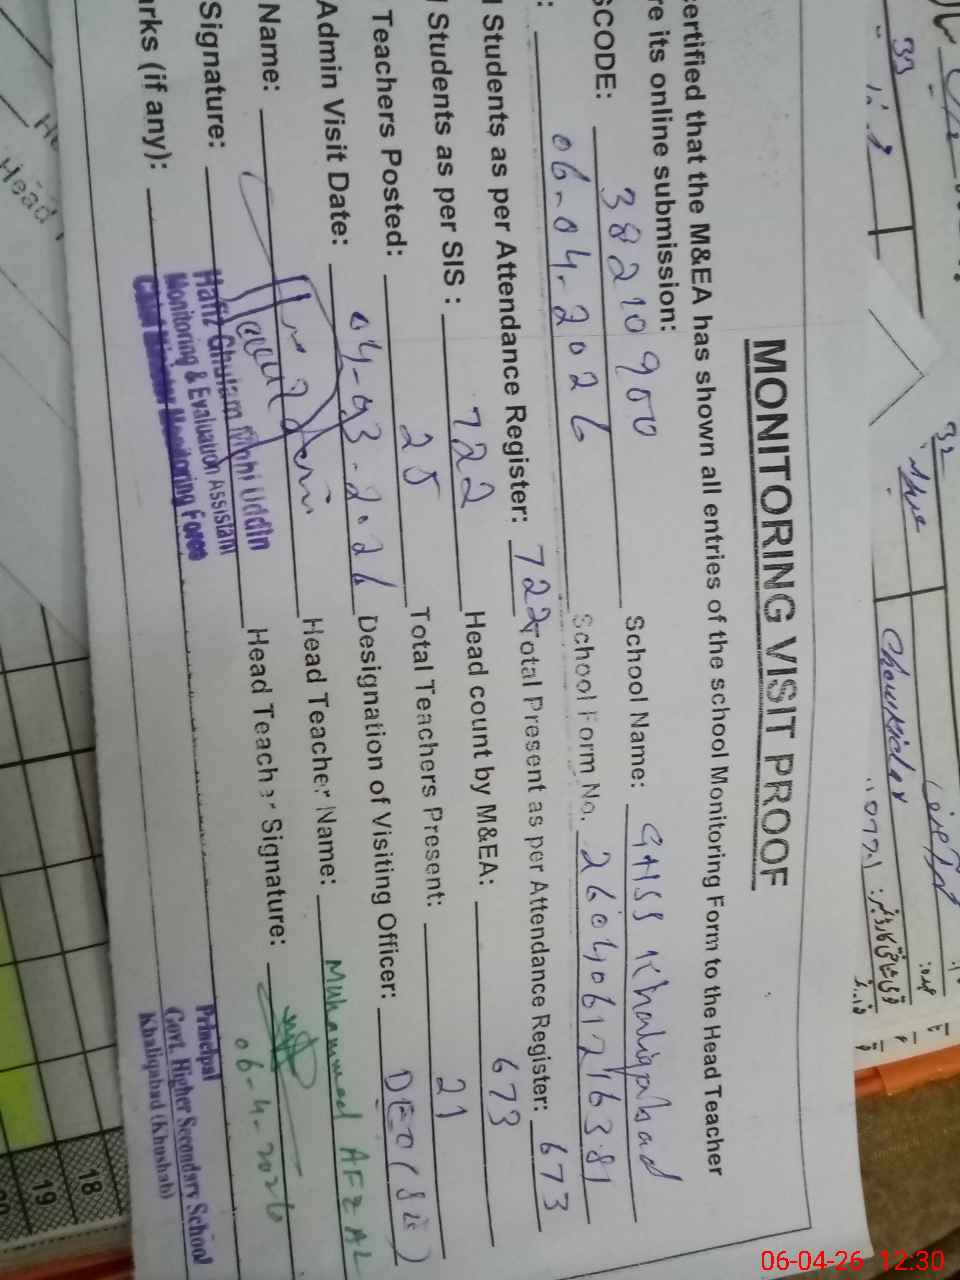 MONITORING VISIT PROOF
ertified that the M&EA has shown all entries of the school Monitoring Form to the Head Teacher
re its online submission:
SCODE: 38210900 School Name: GHSS Khaliqabad
: 06-04-2026 School Form No. 2604061216381
l Students as per Attendance Register: 722 Total Present as per Attendance Register: 673
l Students as per SIS : 722 Head count by M&EA: 673
Teachers Posted: 25 Total Teachers Present: 21
Admin Visit Date: 04-03-2026 Designation of Visiting Officer: DEO (SE)
Name: Head Teacher Name: Muhammad AFZAL
Signature: Head Teacher Signature:
06-4-2026
arks (if any):
Hafiz Ghulam Mohi Uddin
Monitoring & Evaluation Assistant
Chief Minister Monitoring Force
Principal
Govt. Higher Secondary School
Khaliqabad (Khushab)
33
32
Chowkidar
Head
18
19
06-04-26 12:30